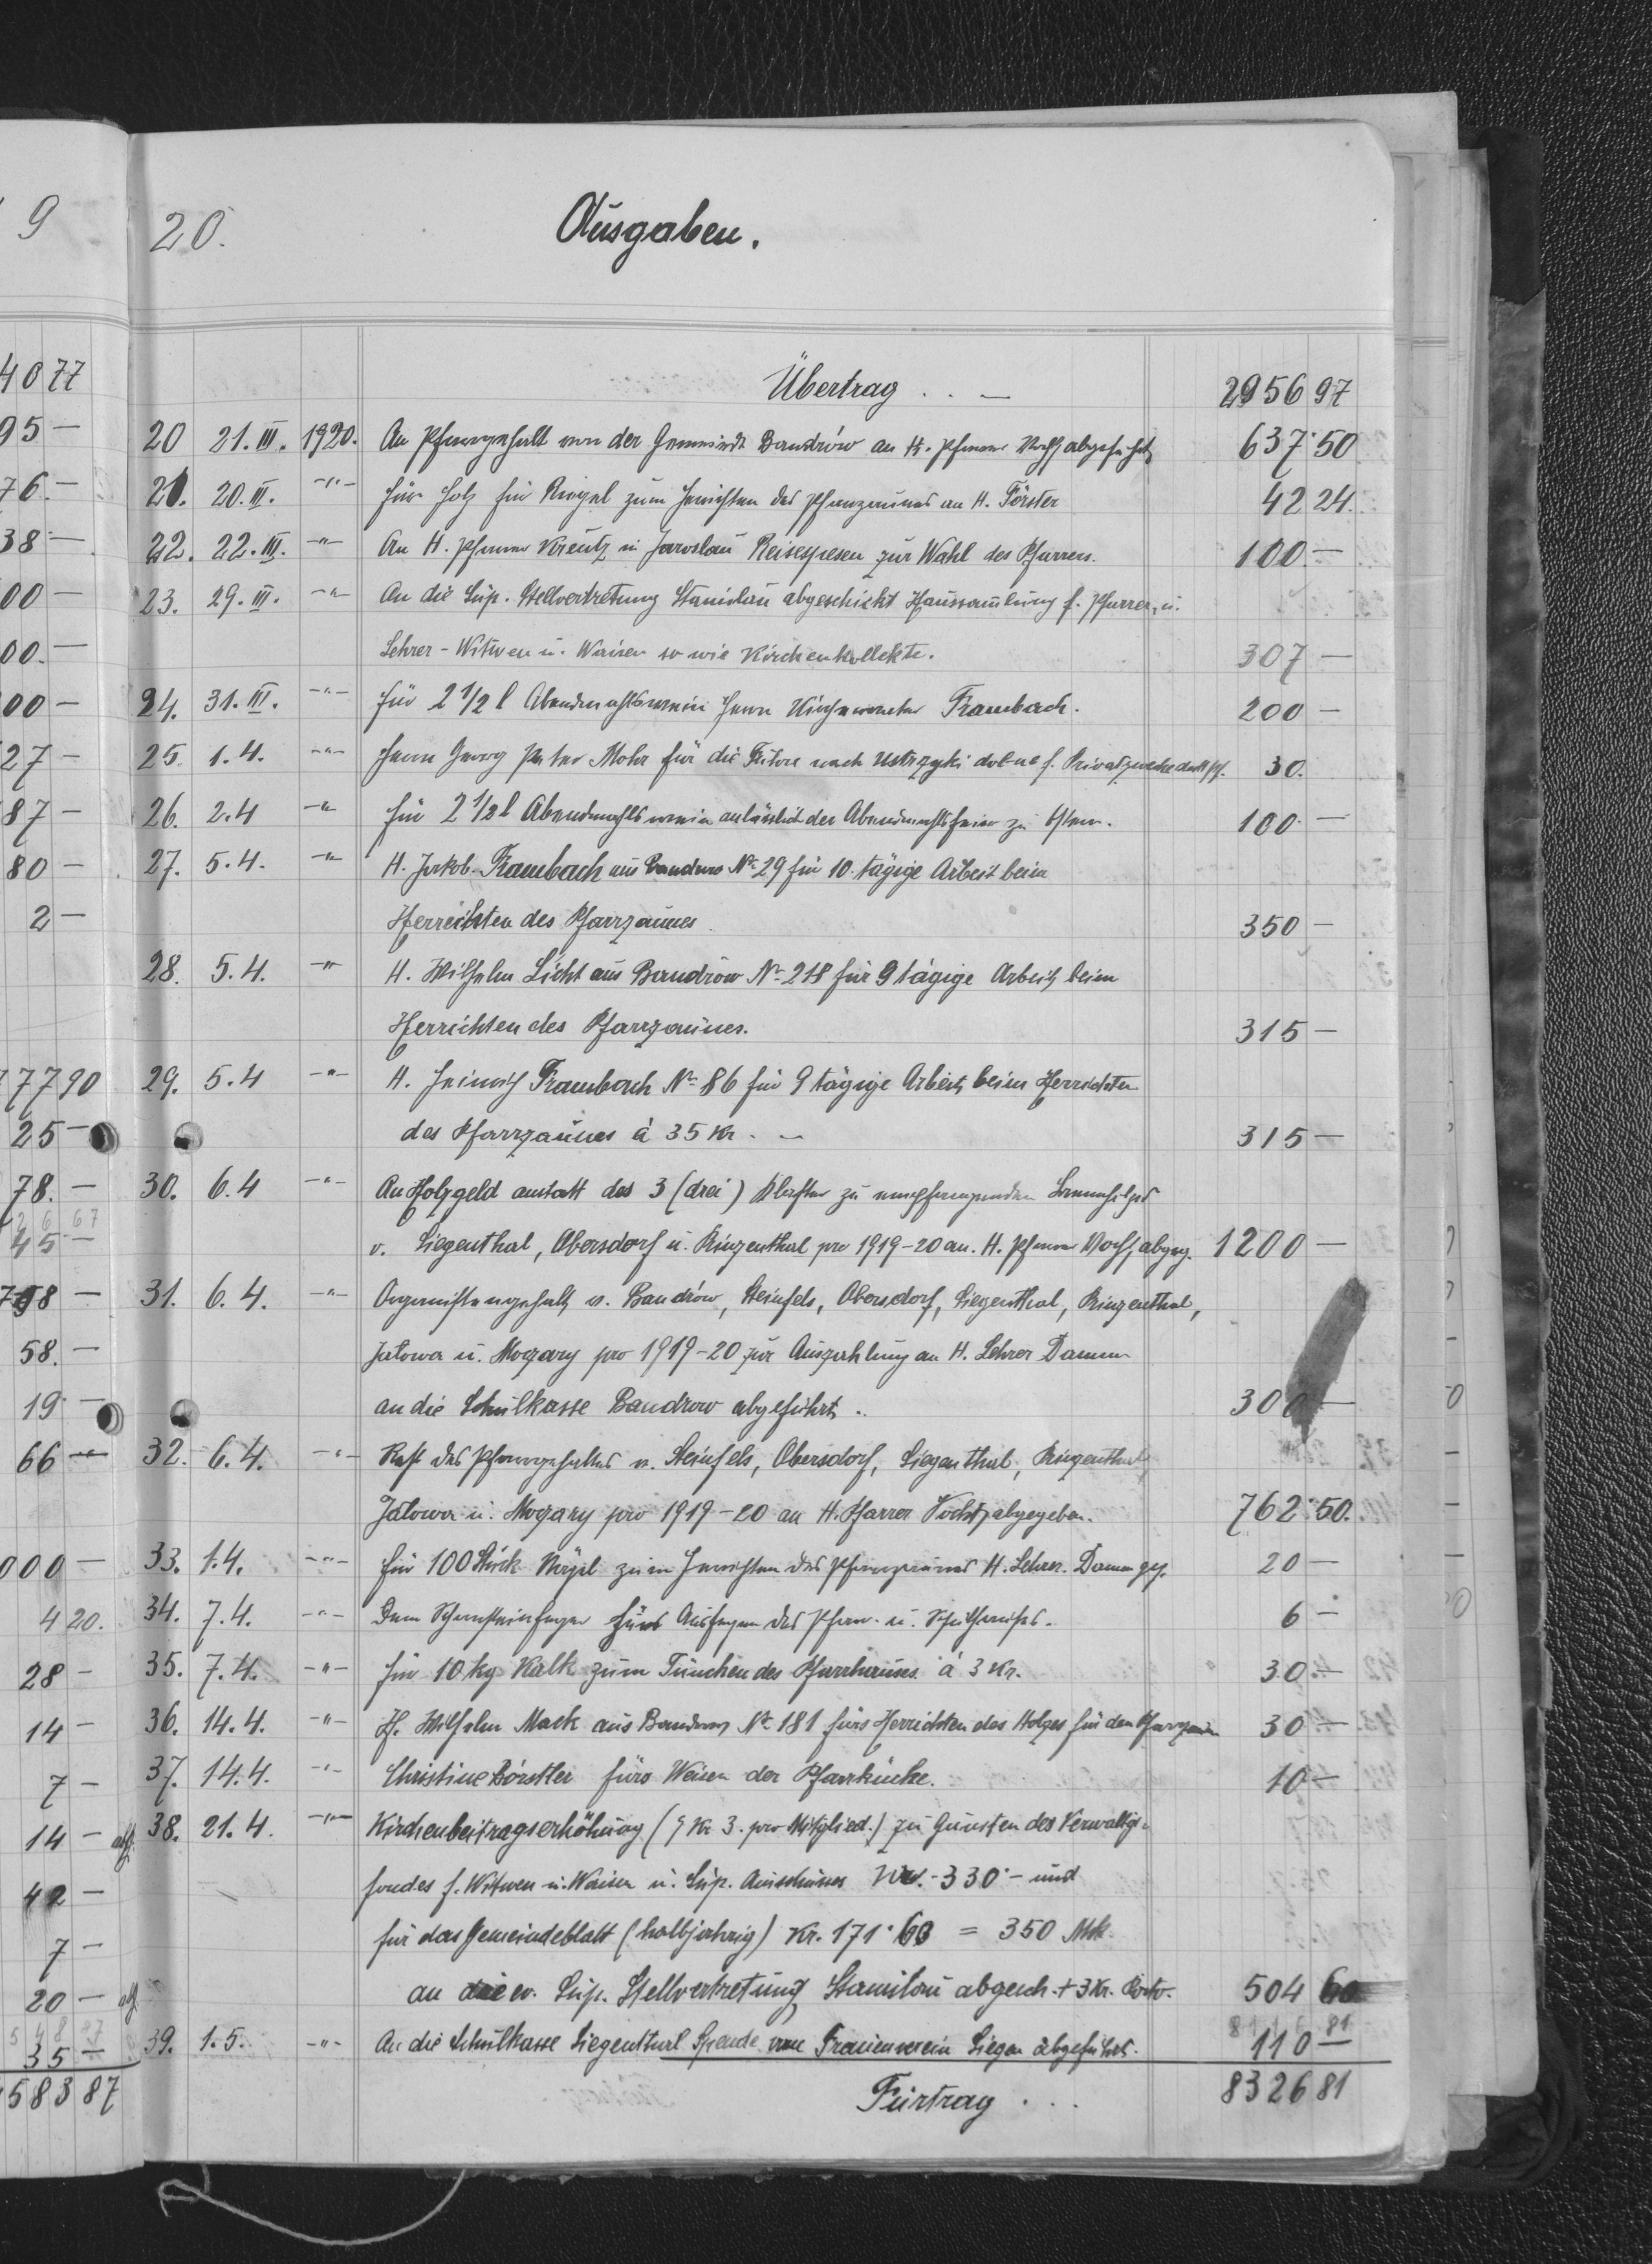 9
4077
95 —
76. —
38 —
00 —
00. —
00 —
27 —
87 —
80 —
2 —
7790
25 —
78. —
45 —
58. —
19 —
66 —
000 —
420.
28 —
14 —
7 —
14 —
42 —
7 —
20 —
35 —
58387
20. Ausgaben.
Übertrag . . — 2956 97
20 21. III. 1920. An Pfarrgehalt von der Gemeinde Bandrów an H. Pfarrer abgeführt 637·50
21. 20. III. -"- für Holz für Riegel zum Herrichten des Pfarrzaunes an H. Förster 42 24.
22. 22. III. -"- An H. Pfarrer Kreutz in Jaroslau Reisespesen zur Wahl des Pfarrers. 100. —
23. 29. III. -"- An die Sup. Stellvertretung Stanislau abgeschickt Haussamlung f. Pfarrer, u.
Lehrer - Witwen u. Waisen so wie Kirchenkollekte. 307 —
24. 31. III. -"- für 2 1/2 l Abendmahlswein Herrn Trambach. 200 —
25. 1. 4. -"- Herrn Georg Peter Mohr für die Fuhre nach Ustrzyki dolne f. Privatzwecke 30.
26. 2. 4 -"- für 2 1/2 l Abendmahlswein anlässlich der Abendmahlsfeier zu Ostern. 100. —
27. 5. 4. -"- H. Jakob Trambach aus Bandrow No. 29 für 10. tägige Arbeit beim
Herrichten des Pfarrzaunes. 350 —
28. 5. 4. -"- H. Wilhelm Licht aus Bandrow No. 218 für 9 tägige Arbeit beim
Herrichten des Pfarrzaunes. 315 —
29. 5. 4 -"- H. Heinrich Trambach No. 86 für 9 tägige Arbeit beim Herrichten
des Pfarrzaunes á 35 Kr. — 315 —
30. 6. 4 -"- An Holzgeld anstatt des 3 (drei) Klafter zu empfangenden Brennholzes
v. Siegenthal, Obersdorf u. Prinzenthal pro 1919-20 an. H. Pfarrer 1200 —
31. 6. 4. -"- Organistengehalt v. Bandrów, Steinfels, Obersdorf, Siegenthal, Prinzenthal,
Jalowa u. Mogary pro 1919-20 zur Auszahlung an H. Lehrer Damm
an die Schulkasse Bandrow abgeführt.. 300 —
32. 6. 4. -"- Rest des Pfarrgehaltes v. Steinfels, Obersdorf, Siegenthal, Prinzenthal,
Jalowa u. Mogary pro 1919-20 an H. Pfarrer abgegeben. 762·50.
33. 1. 4. -"- für 100 Stück Nägel zum Herrichten des Pfarrzaunes H. Lehrer. Damm 20 —
34. 7. 4. -"- Dem Schornsteinfeger fürs Ausfegen des Pfarr- u. Schulhauses. 6 —
35. 7. 4. -"- für 10 kg Kalk zum Tünchen des Pfarrhauses á 3 Kr. 30. —
36. 14. 4. -"- H. Wilhelm Mack aus Bandrow No. 181 fürs Herrichten des Holzes für den Pfarrzaun 30 —
37. 14. 4. -"- Christine Börstler fürs Weisen der Pfarrküche. 10 —
38. 21. 4. -"- Kirchenbeitragserhöhung (á Kr 3. pro Mitglied.) zu Gunsten des Verwaltgs-
fondes f. Witwen u. Waisen u. Sup. Ausschusses 330·— und
für das Gemeindeblatt (halbjahrig) Kr. 171·60 = 350 Mk.
an die ev. Sup. Stellvertretung Stanilau abgesch. + 3 Kr. Porto. 504 60
39. 1. 5. -"- An die Schulkasse Siegenthal Spende vom Frauenverein Siegen abgeführt. 110 —
Fürtrag . . . 8326 81